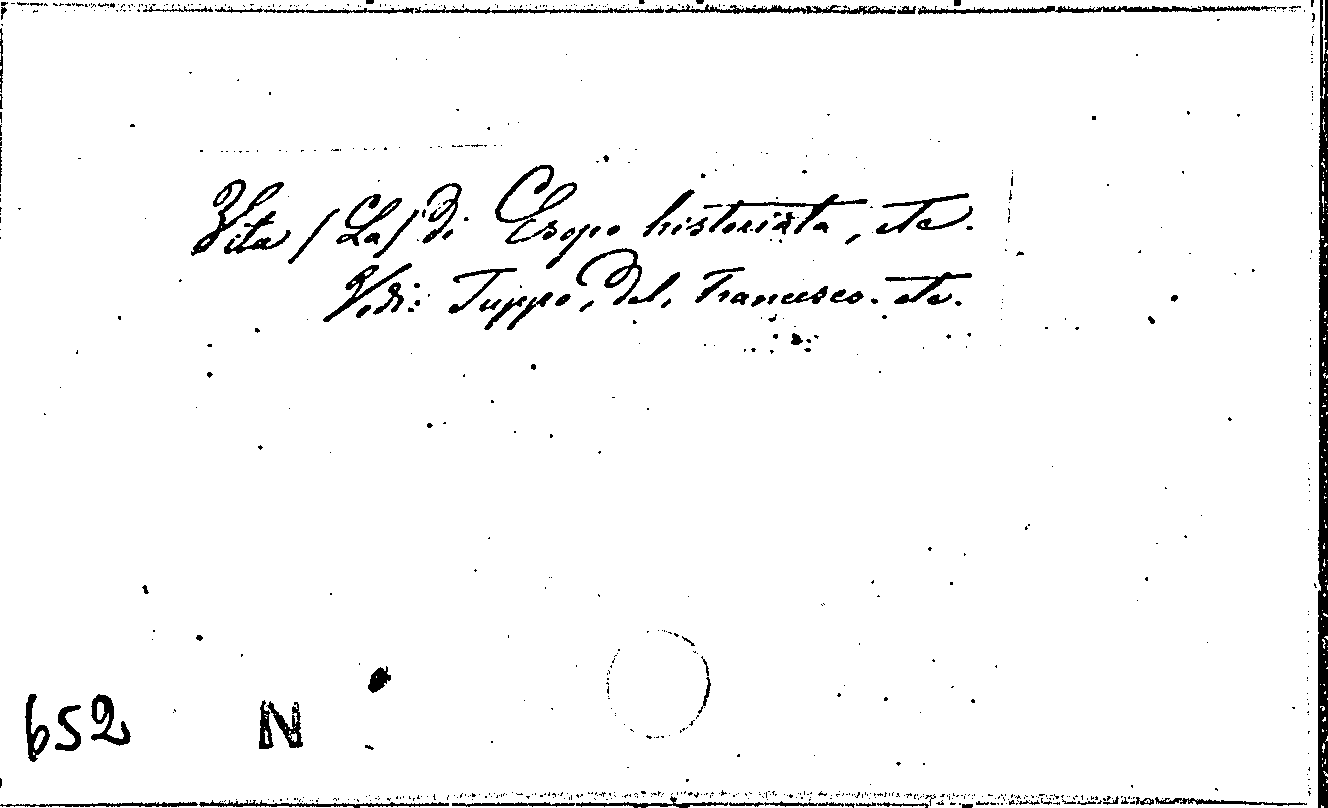 Vita /La/ di Esopo historiata, etc.
Vedi: Tuppo, Del, Francesco. etc.
652 N